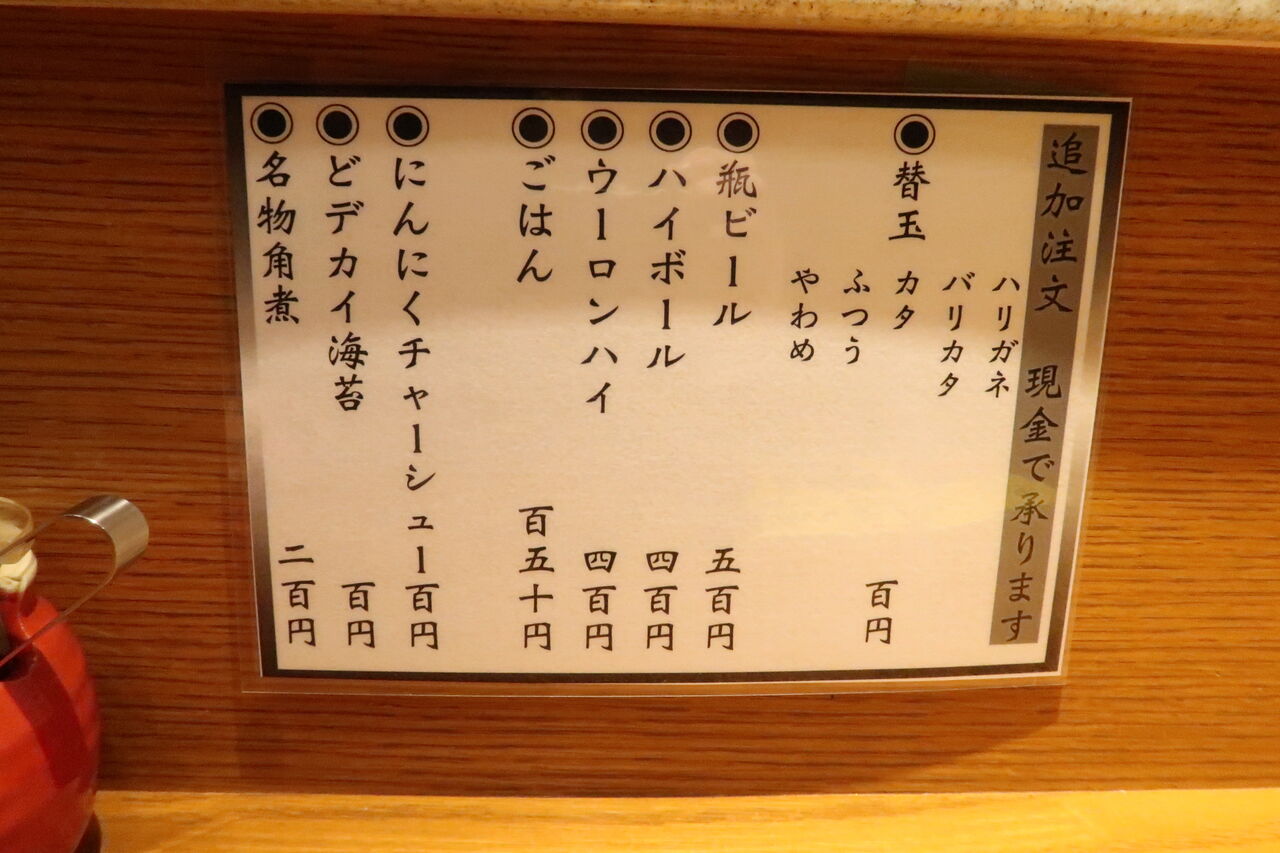 追加注文 現金で承ります
ハリガネ
バリカタ
◉替玉 カタ 百円
ふつう
やわめ
◉瓶ビール 五百円
◉ハイボール 四百円
◉ウーロンハイ 四百円
◉ごはん 百五十円
◉にんにくチャーシュー百円
◉どデカイ海苔 百円
◉名物角煮 二百円